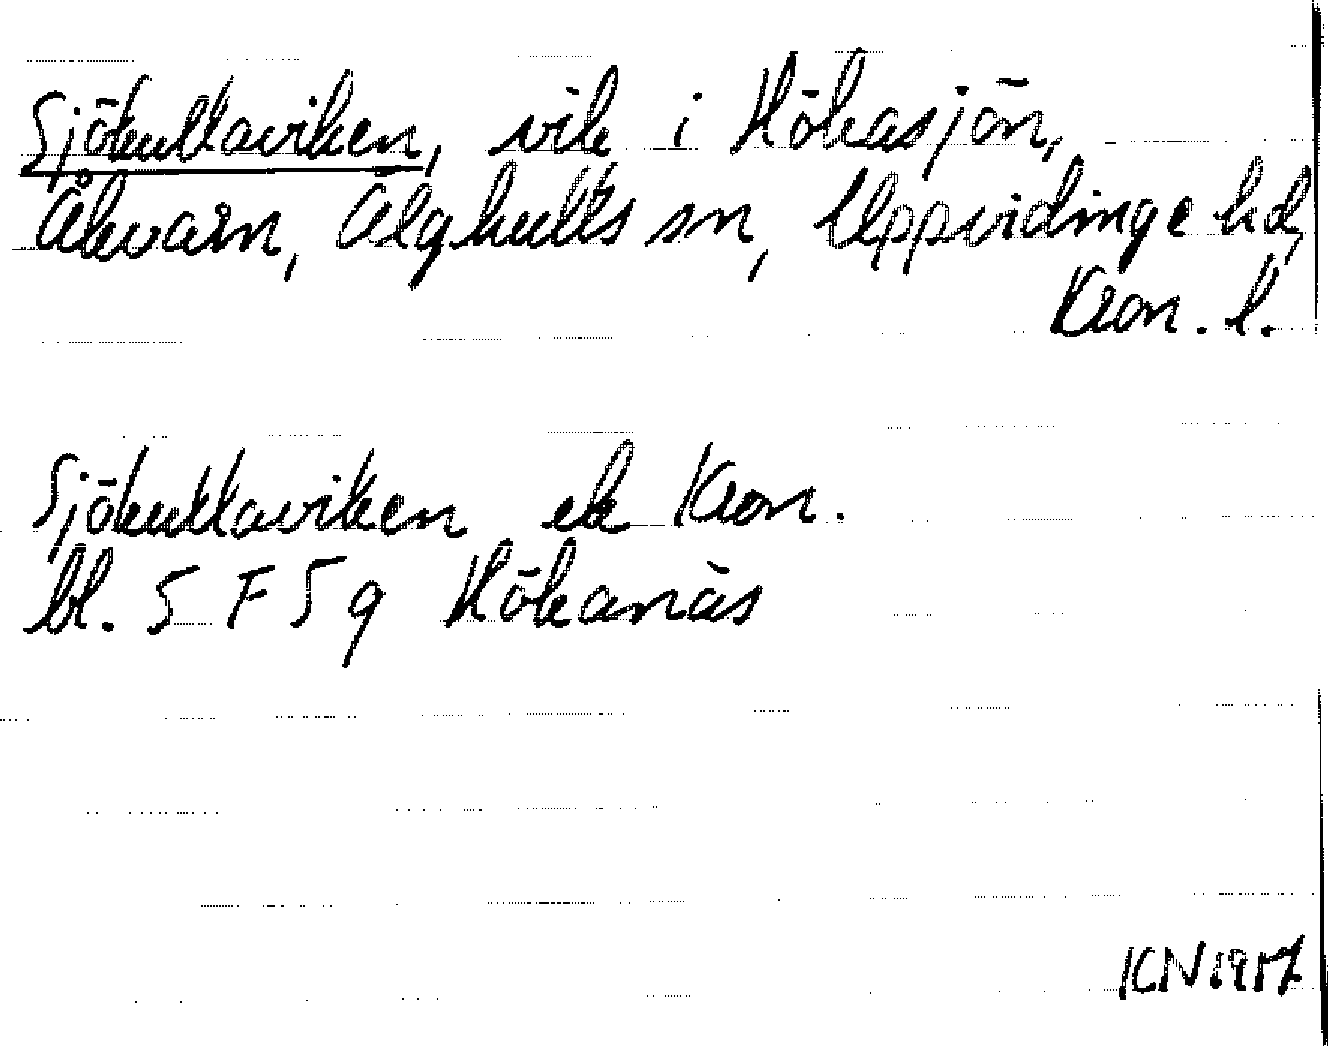 Sjökullaviken, vik i Hökasjön,
Åkvarn, Älghults sn, Uppvidinge hd,
Kron. l.
Sjökullaviken ek Kron.
bl. 5 F 5 g Hökanäs
KN